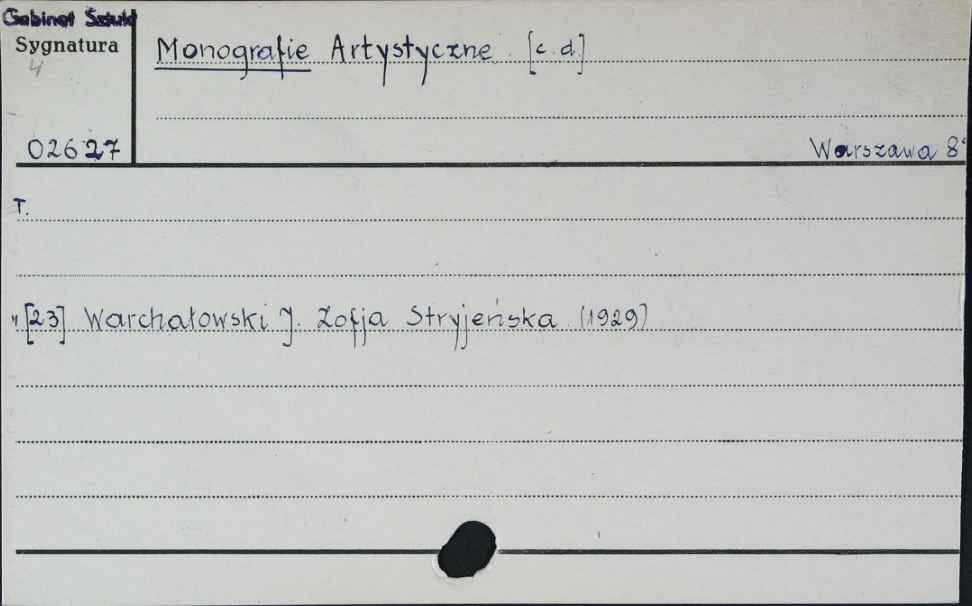 Gabinet Sztuki
Sygnatura
4
Monografie Artystyczne. [c.d]
02627
Warszawa 8°
T.
" [23] Warchałowski J. Zofja Stryjeńska. (1929)